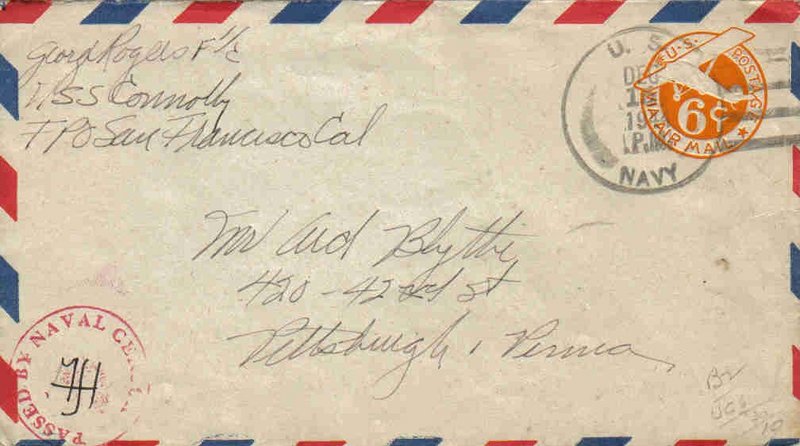 Georg Rogers F 1/c
USS Connolly
FPO San Francisco Cal
U. S.
DEC
1
19
P.M.
NAVY
U.S. POSTAGE
6¢
VIA AIR MAIL
Mr Ard Blythe
420-42nd St
Pittsburgh, Penna
PASSED BY NAVAL